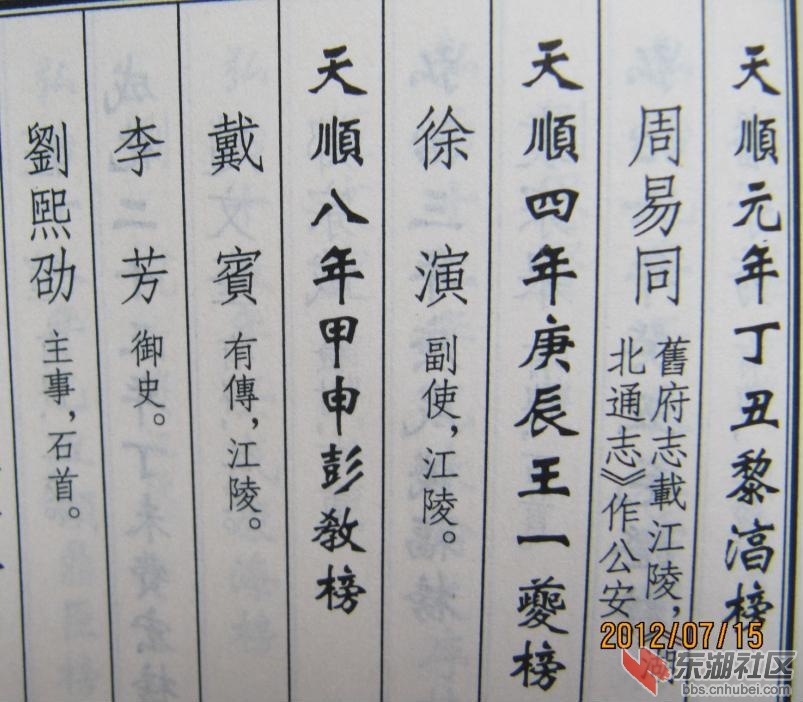 天順元年丁丑黎淳榜
周易同 舊府志載江陵，《湖
北通志》作公安
天順四年庚辰王一夔榜
徐演 副使，江陵。
天順八年甲申彭教榜
戴賓 有傳，江陵。
李芳 御史。
劉熙劭 主事，石首。
2012/07/15
东湖社区
bbs.cnhubei.com